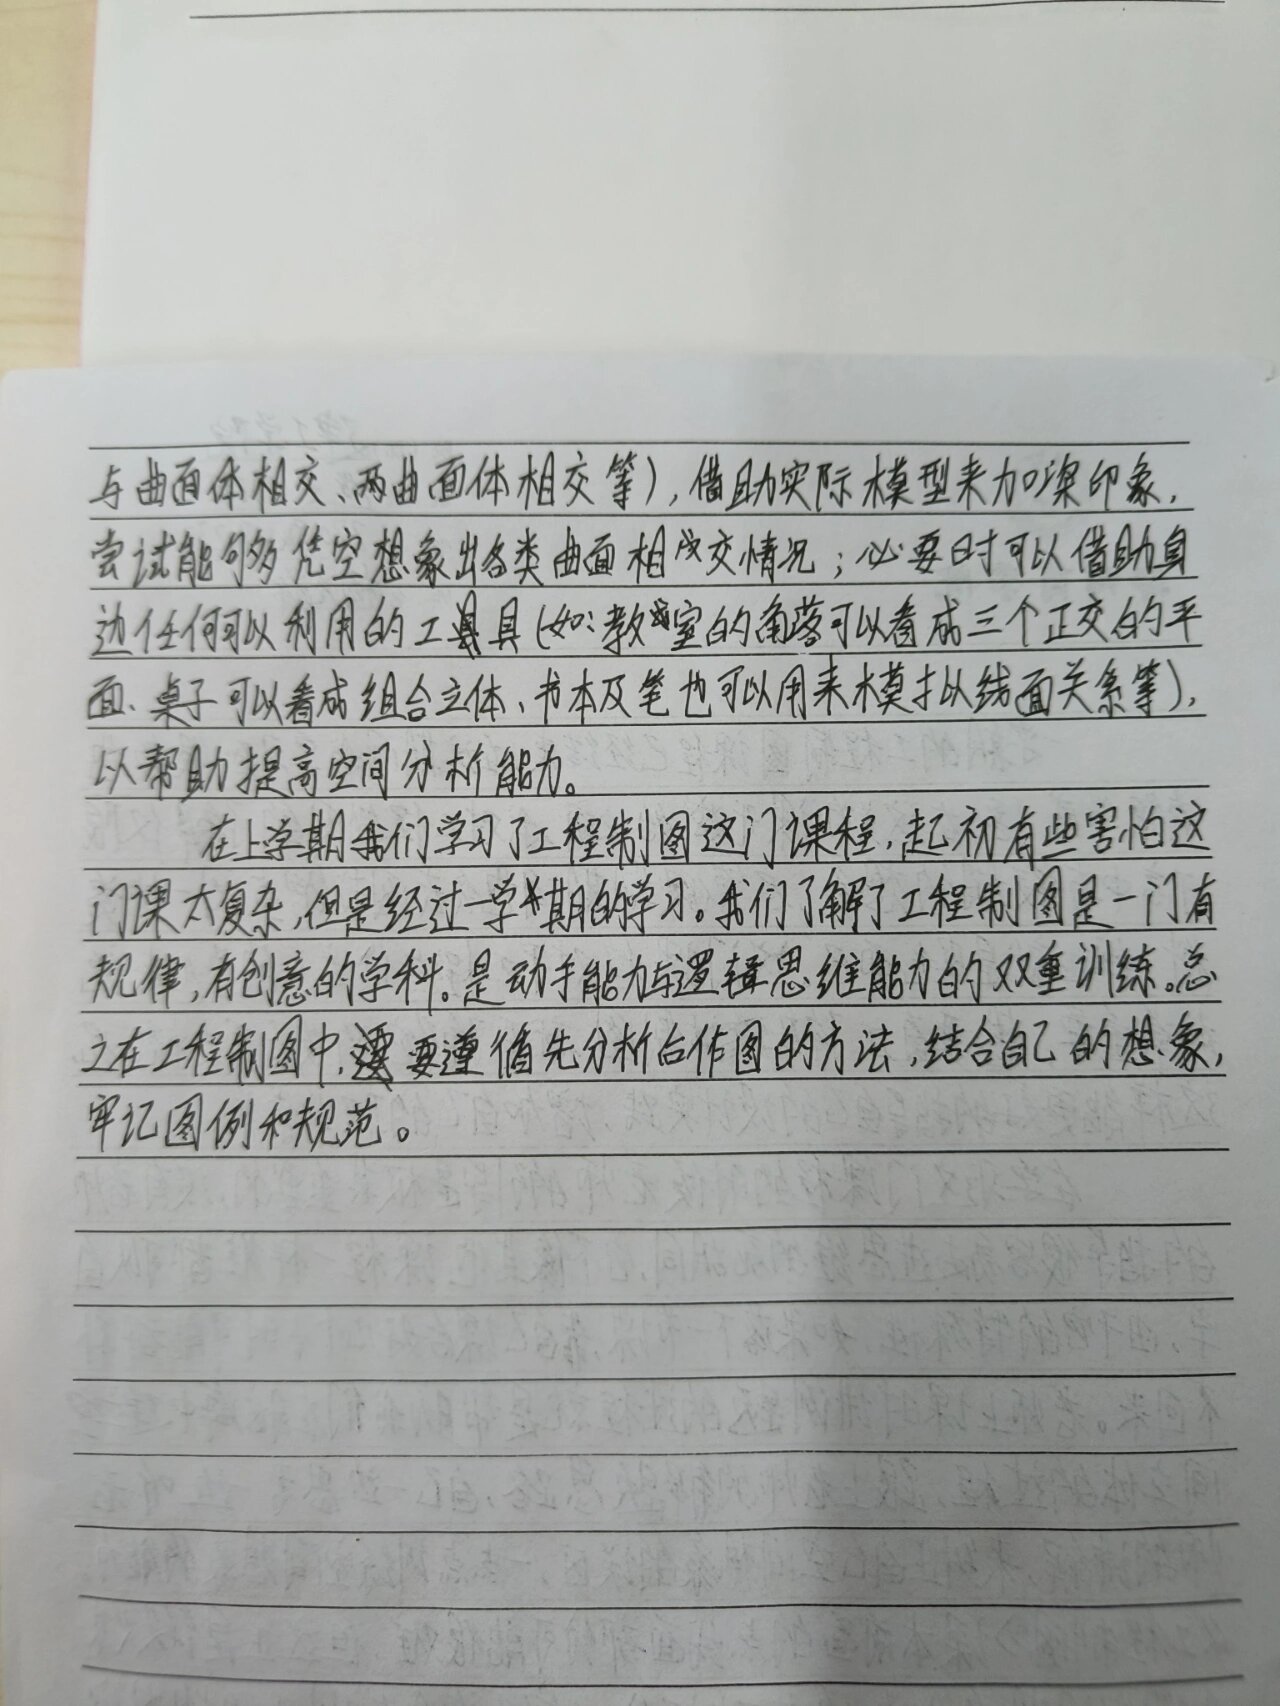 与曲面体相交、两曲面体相交等），借助实际模型来加深印象，
尝试能够多凭空想象出各类曲面相交情况；必要时可以借助身
边任何可以利用的工具（如：教室的角落可以看成三个正交的平
面、桌子可以看成组合立体、书本及笔也可以用来模拟线面关系等），
以帮助提高空间分析能力。
在上学期我们学习了工程制图这门课程，起初有些害怕这
门课太复杂，但是经过一学期的学习。我们了解了工程制图是一门有
规律，有创意的学科。是动手能力与逻辑思维能力的双重训练。总
之在工程制图中，要遵循先分析后作图的方法，结合自己的想象，
牢记图例和规范。